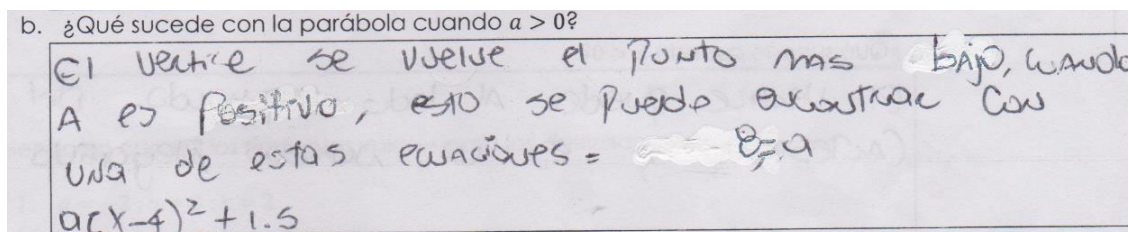 b. ¿Qué sucede con la parábola cuando a > 0?
El vertice se vuelve el punto mas bajo, cuando
A es positivo, esto se puede encontrar con
una de estas ecuaciones = 8=a
a(x-4)² + 1.5